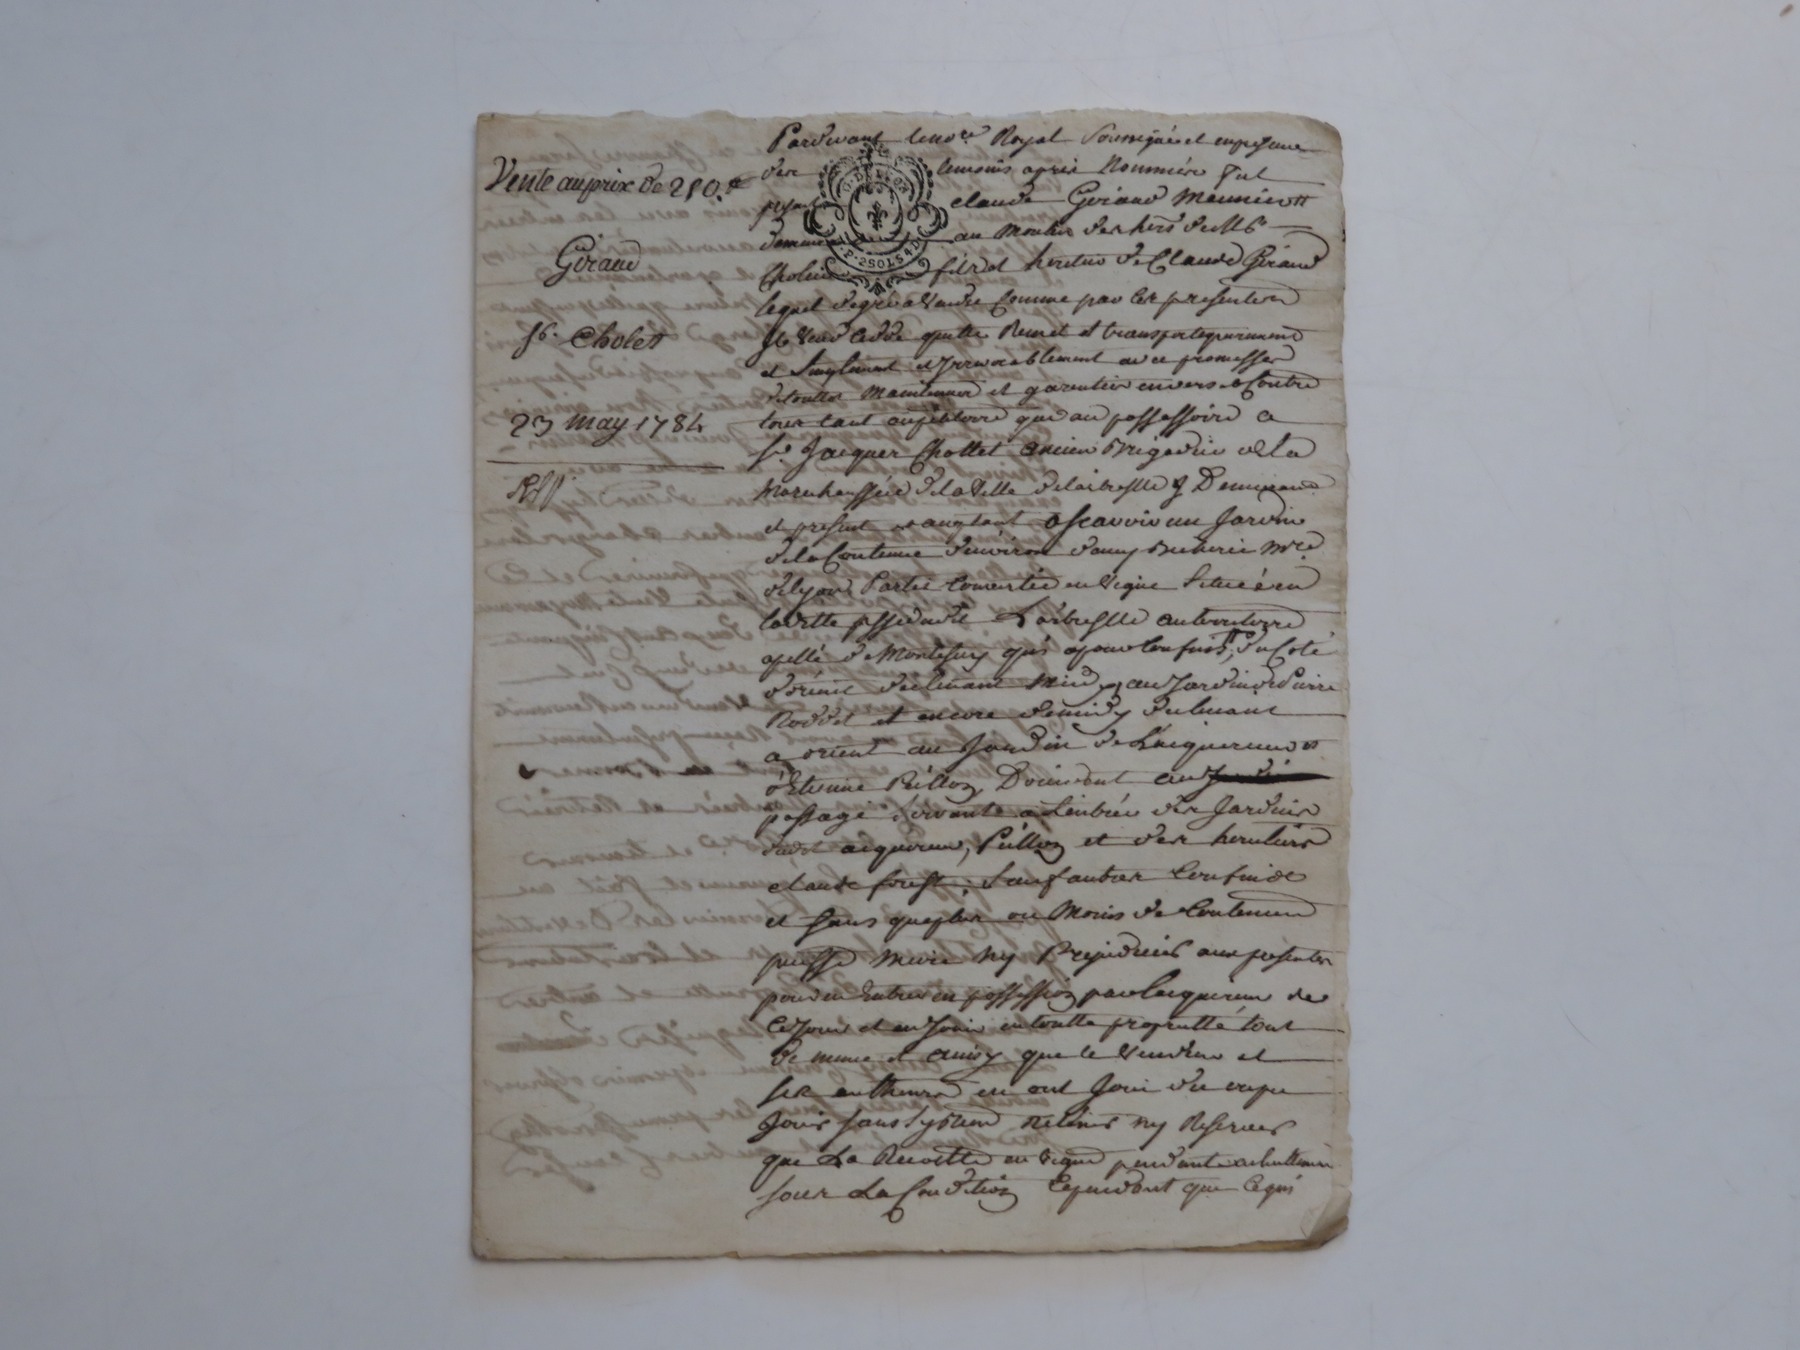 Vente au prix de 250 #
Giraud
Sr. Cholet
23 may 1784
Pardevant le nore Royal soussigné et en presence
des temoins apres Nommés fut
present claude Giraud meunier
demeurant au moulin des hers de Mr
Cholier fils et heritier de Claude Giraud
lequel de gré a vendu comme par les presentes
Il vend cedde quitte Remet et transporte purement
et simplement et Irrevocablement avec promesses
de touttes Maintenue et garentie envers et Contre
tous tant au petitoire que au possessoire a
sr. Jacquer Chollet ancien Brigadier de la
Marechaussée de la Ville de larbresle y Demeurant
et present acceptant ascavoir un Jardin
de la Contenue d'environ
de lyon Partie convertie en vigne située en
laditte Larbresle au territoire
apellé de qui a pour confins, du Coté
d'orient declinant midy, au Jardin de Pierre
Roddet et encore de midy declinant
a orient au Jardin de L'acquereur
d'Etienne Péillon, Doccident au
passage servante a Lentrée des Jardins
dudit acquereur, Péillon et des heritiers
claude forest; sauf autres Confins
et sans que plus ou Moins de Contenue
puisse nuire ny Prejudicier aux presentes
pour en Entrer en possession par lacquereur de
ce Jour et en Jouir en toutte proprieté tout
de meme et ainsy que le vendeur et
ses autheurs en ont Joui du
Jouir sans Retenir ny Reserves
que La Recolte en vigne pendante
sous La Condition Cependant que ce qui